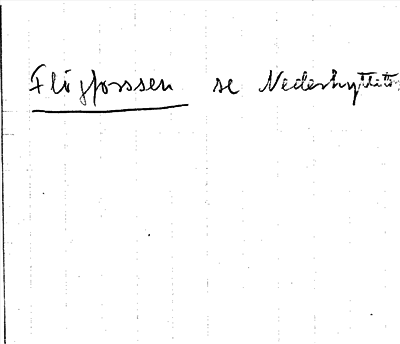 Flögforssen se Nederhyttan